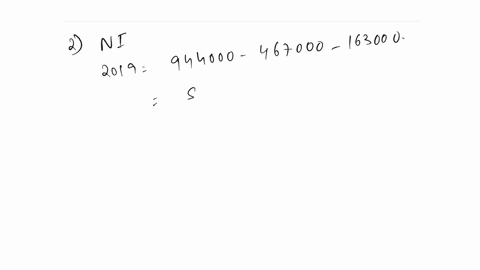 2) NI
2019 = 944000 - 467000 - 163000.
= S